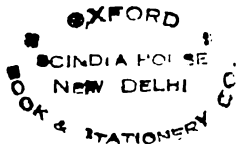 OXFORD
SCINDIA HOUSE
NEW DELHI
BOOK & STATIONERY CO.